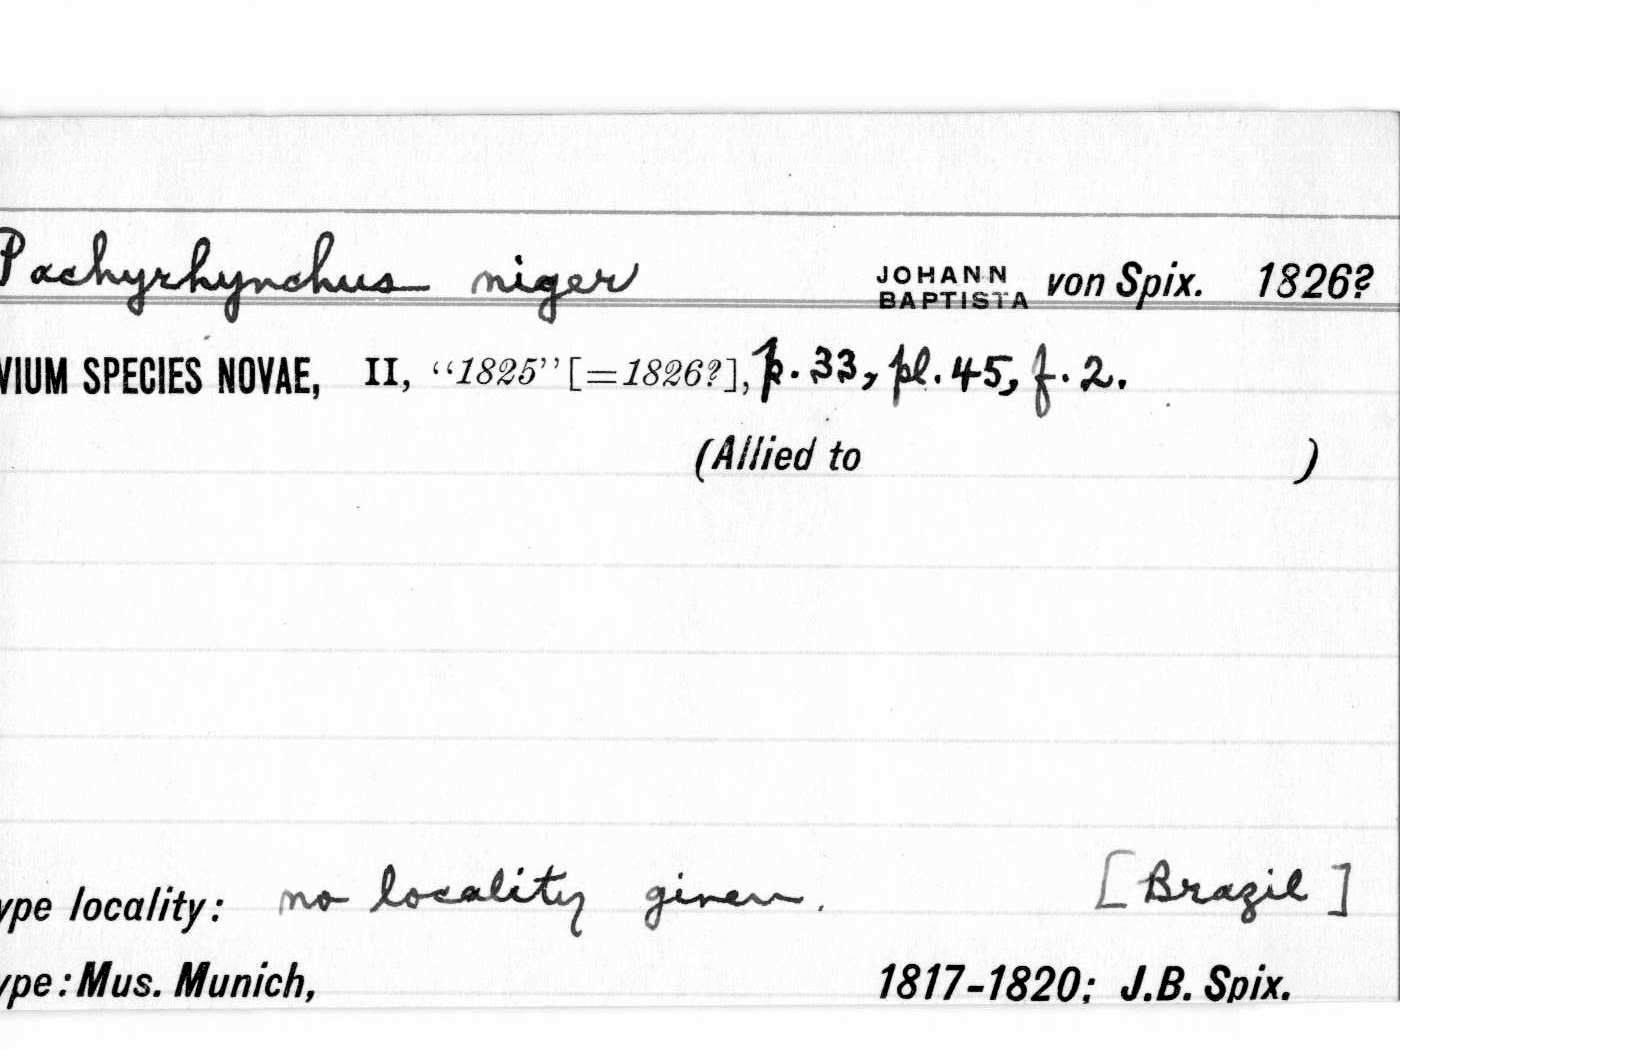 Pachyrhynchus niger JOHANN BAPTISTA von Spix. 1826?
VIUM SPECIES NOVAE, II, “1825” [=1826?], p. 33, pl. 45, f. 2.
(Allied to )
ype locality: no locality given. [Brazil]
ype: Mus. Munich, 1817-1820; J.B. Spix.